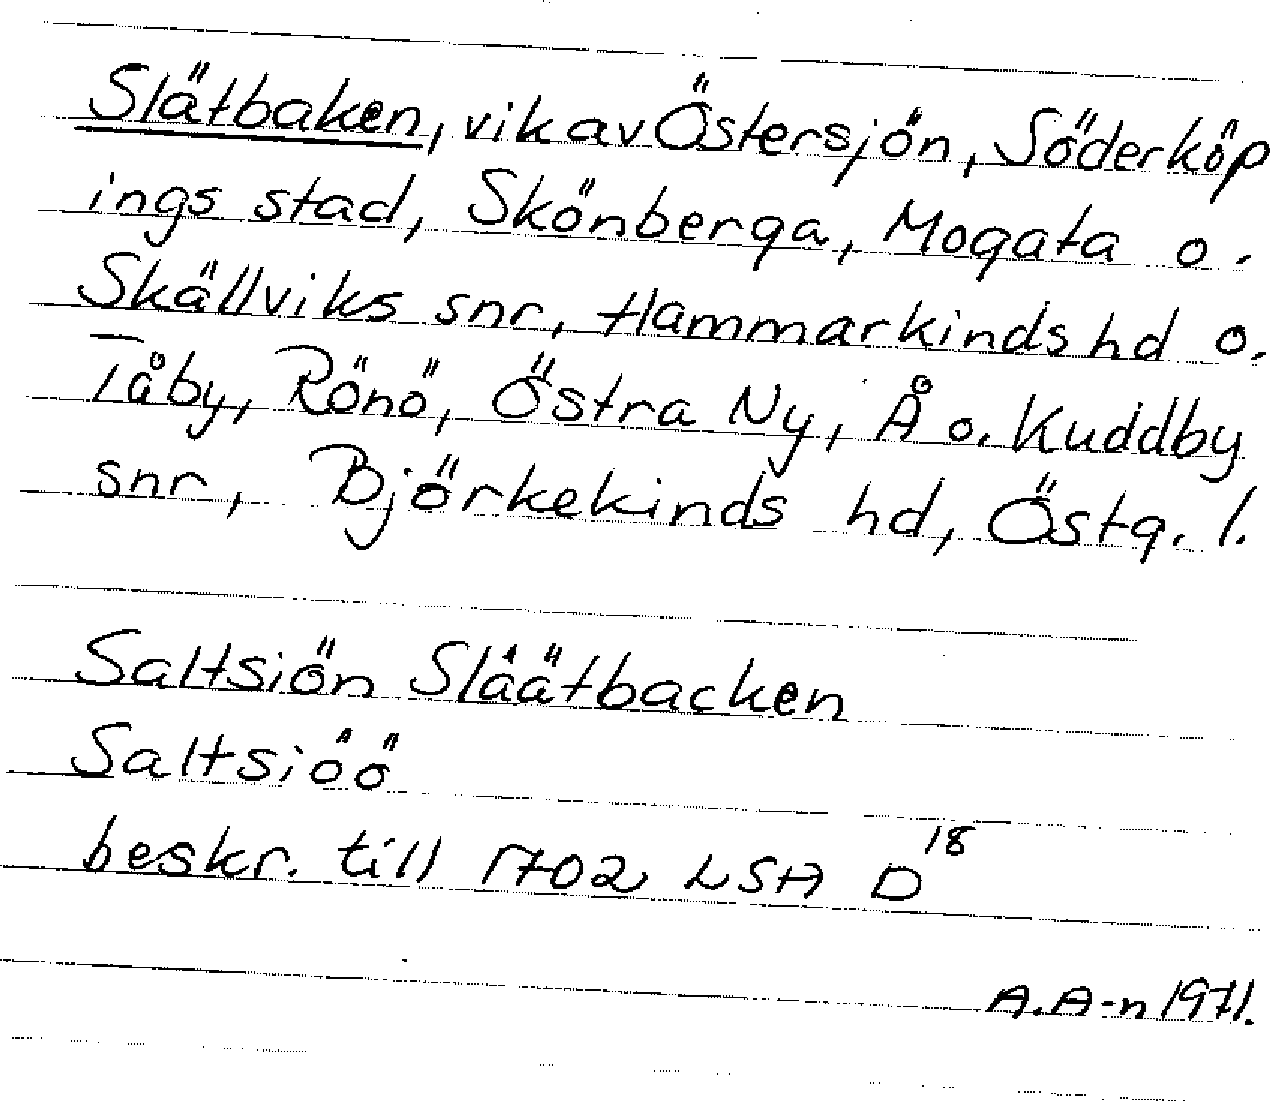 Slätbaken, vik av Östersjön, Söderköp
ings stad, Skönberga, Mogata o.
Skällviks snr, Hammarkinds hd o.
Tåby, Rönö, Östra Ny, Å o. Kuddby
snr, Björkekinds hd, Östg. l.
Saltsiön Slåätbacken
Saltsiöö
beskr. till 1702 LSA D¹⁸
A.A-n 1971.